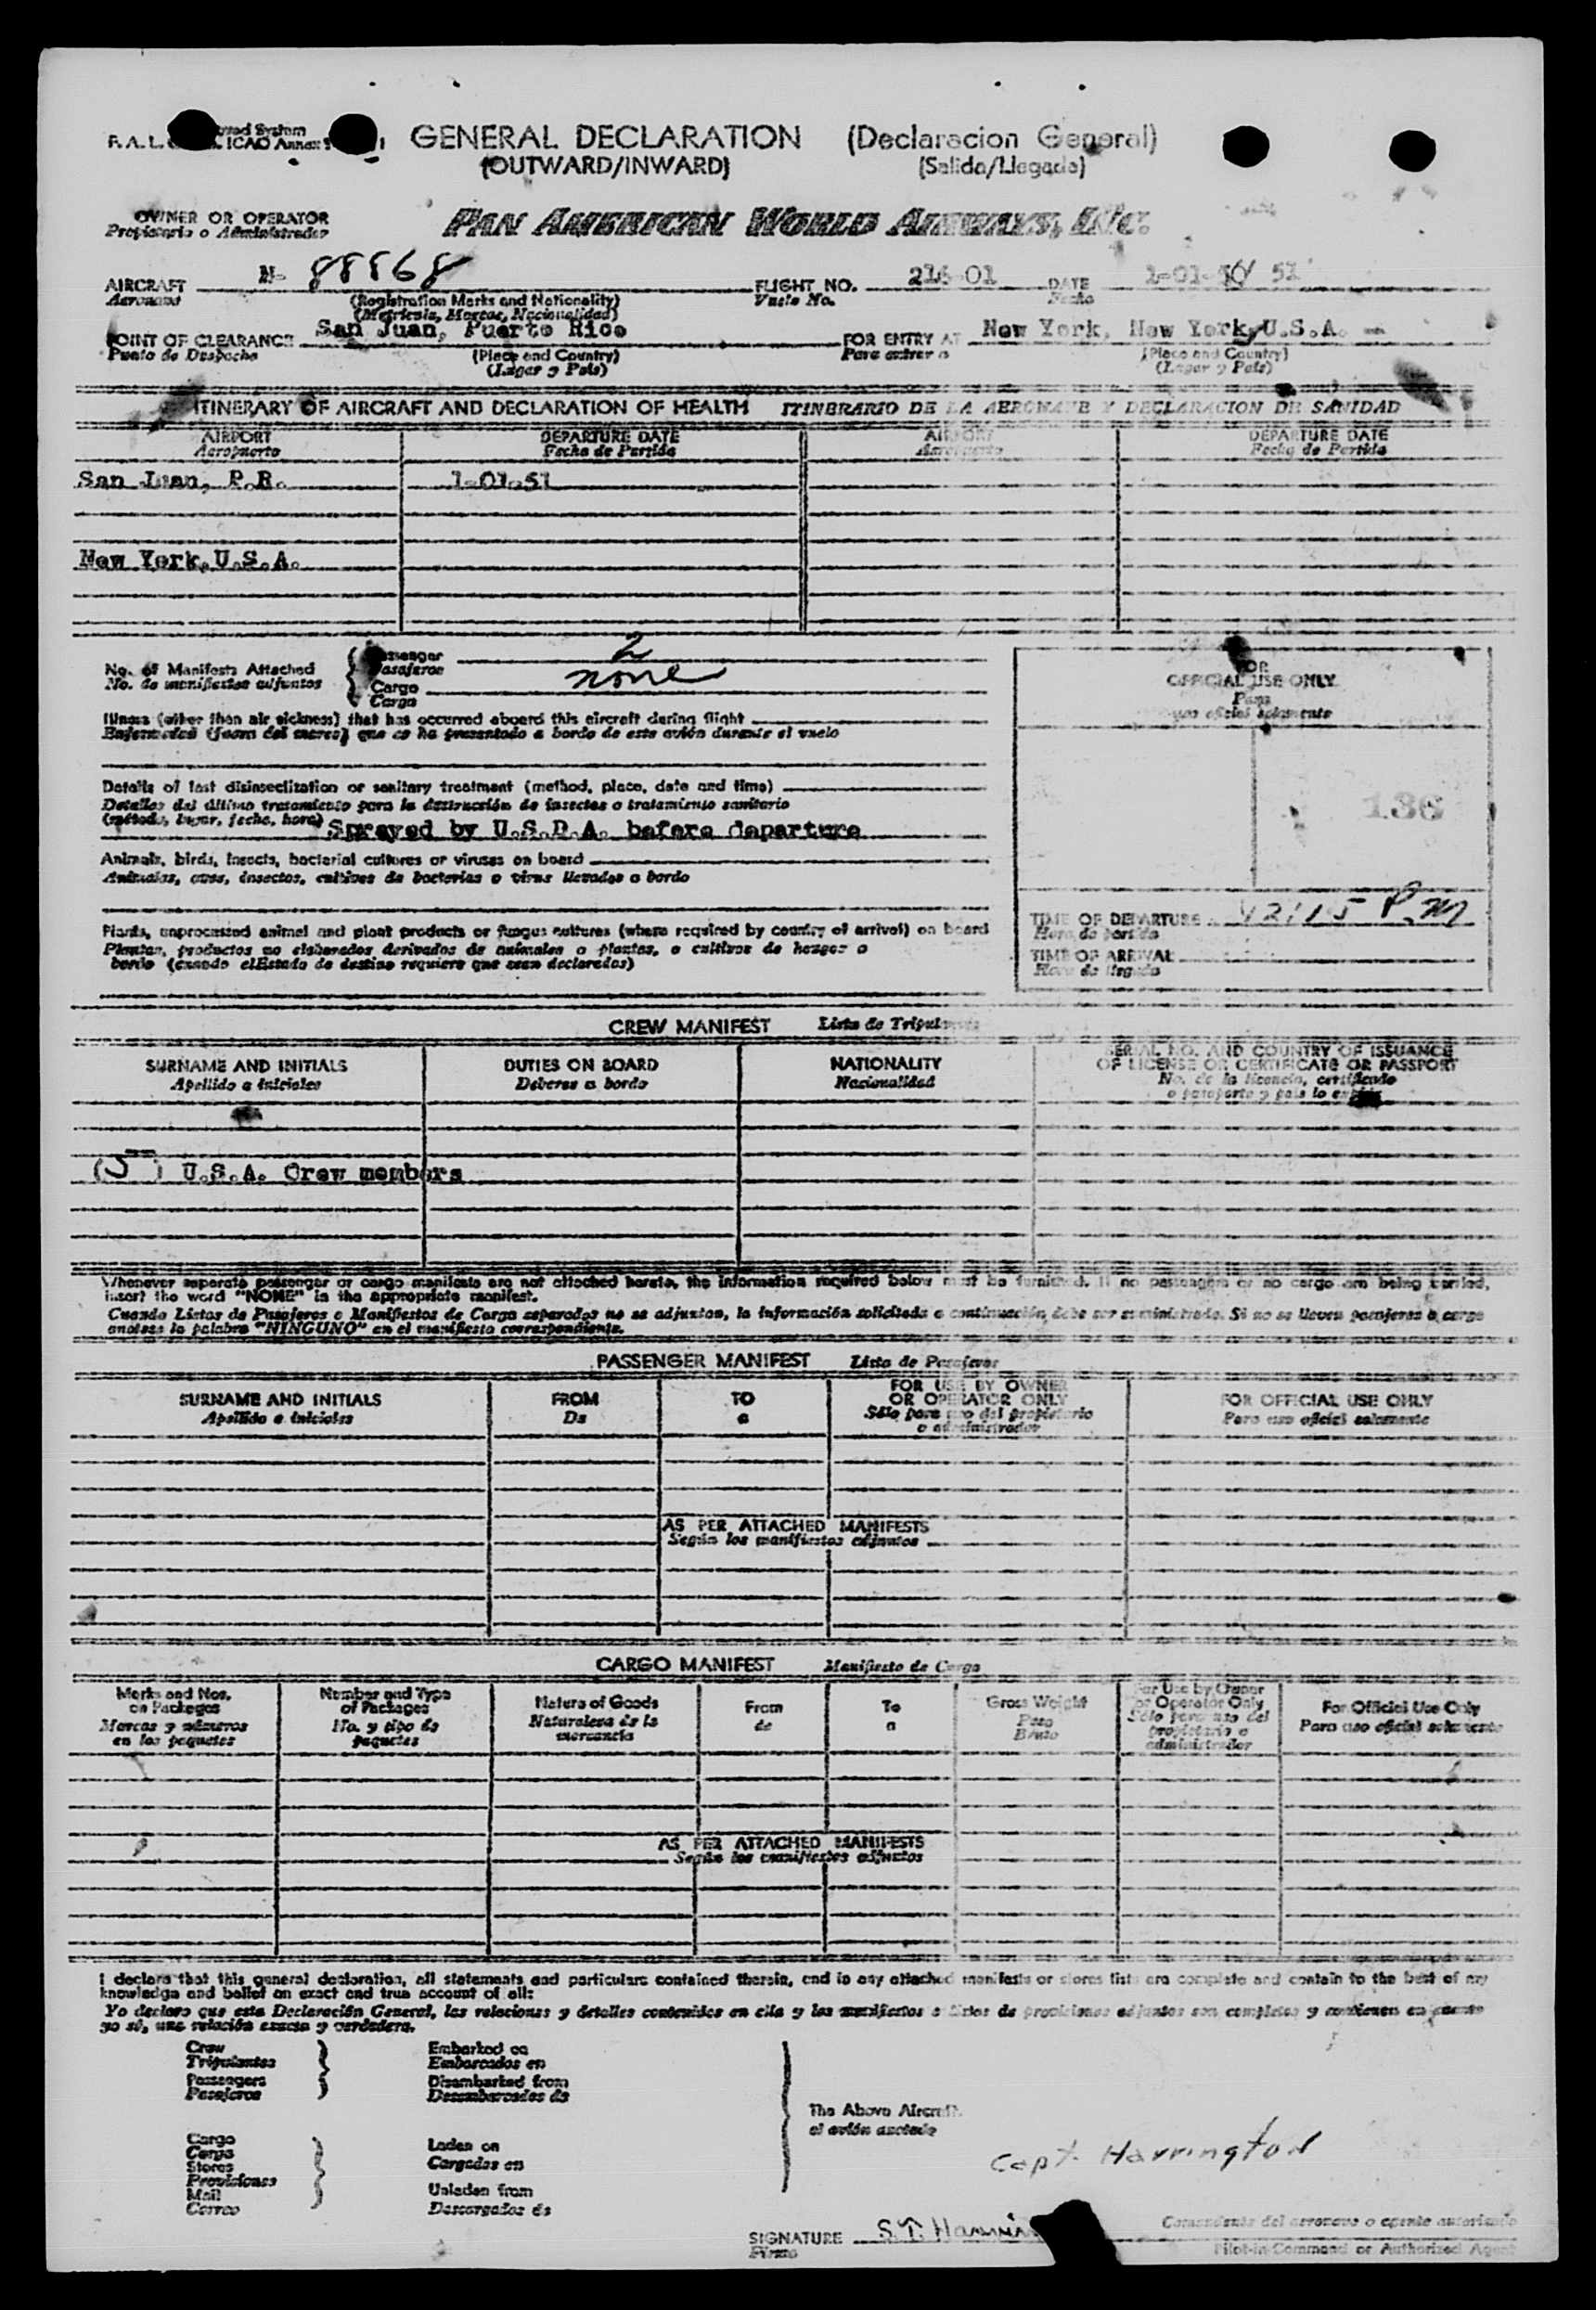 GENERAL DECLARATION (Declaracion General)
(OUTWARD/INWARD) (Salida/Llegada)
OWNER OR OPERATOR PAN AMERICAN WORLD AIRWAYS, INC.
Propietario o Administrador
AIRCRAFT N- 88868 FLIGHT NO. DATE 51
Aeronave (Registration Marks and Nationality) Vuelo No. Fecha
(Matricula, Marcas, Nacionalidad)
POINT OF CLEARANCE San Juan, Puerto Rico FOR ENTRY AT New York, New York, U.S.A.
Punto de Despacho (Place and Country) Para entrar a (Place and Country)
(Lugar y Pais) (Lugar y Pais)
ITINERARY OF AIRCRAFT AND DECLARATION OF HEALTH ITINERARIO DE LA AERONAVE Y DECLARACION DE SANIDAD
AIRPORT DEPARTURE DATE AIRPORT DEPARTURE DATE
Aeropuerto Fecha de Partida Aeropuerto Fecha de Partida
San Juan, P.R. 1-01-51
New York, U.S.A.
No. of Manifests Attached { Passenger 2
No. de manifiestos adjuntos Pasajeros
Cargo none
Carga
FOR
OFFICIAL USE ONLY
Para
uso oficial solamente
Illness (other than air sickness) that has occurred aboard this aircraft during flight
Enfermedad (fuera del mareo) que se ha presentado a bordo de este avión durante el vuelo
Details of last disinsectization or sanitary treatment (method, place, date and time)
Detalles del último tratamiento para la destrucción de insectos o tratamiento sanitario
(método, lugar, fecha, hora) Sprayed by U.S.D.A. before departure
136
Animals, birds, insects, bacterial cultures or viruses on board
Animales, aves, insectos, cultivos de bacterias o virus llevados a bordo
TIME OF DEPARTURE 12:15 P.M
Hora de partida
Plants, unprocessed animal and plant products or fungus cultures (where required by country of arrival) on board
Plantas, productos no elaborados derivados de animales o plantas, o cultivos de hongos a
bordo (cuando el Estado de destino requiere que sean declarados)
TIME OF ARRIVAL
Hora de llegada
CREW MANIFEST Lista de Tripulantes
SURNAME AND INITIALS DUTIES ON BOARD NATIONALITY SERIAL NO. AND COUNTRY OF ISSUANCE
OF LICENSE OR CERTIFICATE OR PASSPORT
Apellido e iniciales Deberes a bordo Nacionalidad No. de la licencia, certificado
o pasaporte y pais lo
(5) U.S.A. Crew members
Whenever separate passenger or cargo manifests are not attached hereto, the information required below must be furnished. If no passengers or no cargo are being carried,
insert the word "NONE" in the appropriate manifest.
Cuando Listas de Pasajeros o Manifiestos de Carga separados no se adjuntan, la información solicitada a continuación, debe ser suministrada. Si no se llevan pasajeros o carga
anótese la palabra "NINGUNO" en el manifiesto correspondiente.
PASSENGER MANIFEST Lista de Pasajeros
SURNAME AND INITIALS FROM TO FOR USE BY OWNER
OR OPERATOR ONLY FOR OFFICIAL USE ONLY
Apellido e iniciales De a Sólo para uso del propietario
o administrador Para uso oficial solamente
AS PER ATTACHED MANIFESTS
Según los manifiestos adjuntos
CARGO MANIFEST Manifiesto de Carga
Marks and Nos.
on Packages
Marcas y números
en los paquetes
Number and Type
of Packages
No. y tipo de
paquetes
Nature of Goods
Naturaleza de la
mercancía
From
de
To
a
Gross Weight
Peso
Bruto
For Use by Owner
or Operator Only
Sólo para uso del
propietario o
administrador
For Official Use Only
Para uso oficial solamente
AS PER ATTACHED MANIFESTS
Según los manifiestos adjuntos
I declare that this general declaration, all statements and particulars contained therein, and in any attached manifests or stores lists are complete and contain to the best of my
knowledge and belief an exact and true account of all:
Yo declaro que esta Declaración General, las relaciones y detalles contenidos en ella y los manifiestos o listas de provisiones adjuntos son completos y contienen en cuanto
yo sé, una relación exacta y verdadera.
Crew
Tripulantes
Passengers
Pasajeros
Embarked on
Embarcados en
Disembarked from
Desembarcados de
The Above Aircraft.
el avión anotado
Cargo
Carga
Stores
Provisiones
Mail
Correo
Laden on
Cargados en
Unladen from
Descargados de
Capt. Harrington
SIGNATURE S.T.
Firma
Comandante del aeronave o agente autorizado
Pilot-in-Command or Authorized Agent